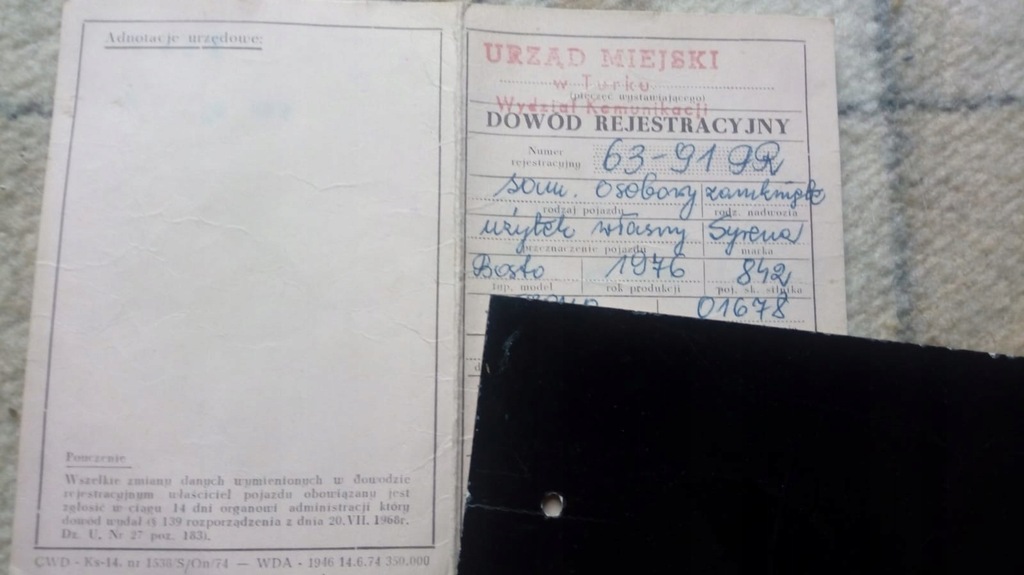 Adnotacje urzędowe:
Pouczenie
Wszelkie zmiany danych wymienionych w dowodzie
rejestracyjnym właściciel pojazdu obowiązany jest
zgłosić w ciągu 14 dni organowi administracji który
dowód wydał (§ 139 rozporządzenia z dnia 20.VII. 1968r.
Dz. U. Nr 27 poz. 183).
CWD - Ks-14. nr 1538/S/On/74 — WDA - 1946 14.6.74 350.000
URZĄD MIEJSKI
w Turku
(pieczęć wystawiającego)
Wydział Komunikacji
DOWÓD REJESTRACYJNY
Numer
rejestracyjny 63-91
sam. osobowy zamknięte
rodzaj pojazdu rodz. nadwozia
użytek własny Syrena
przeznaczenie pojazdu marka
Bosto 1976 842
typ, model rok produkcji poj. sk. silnika
01678